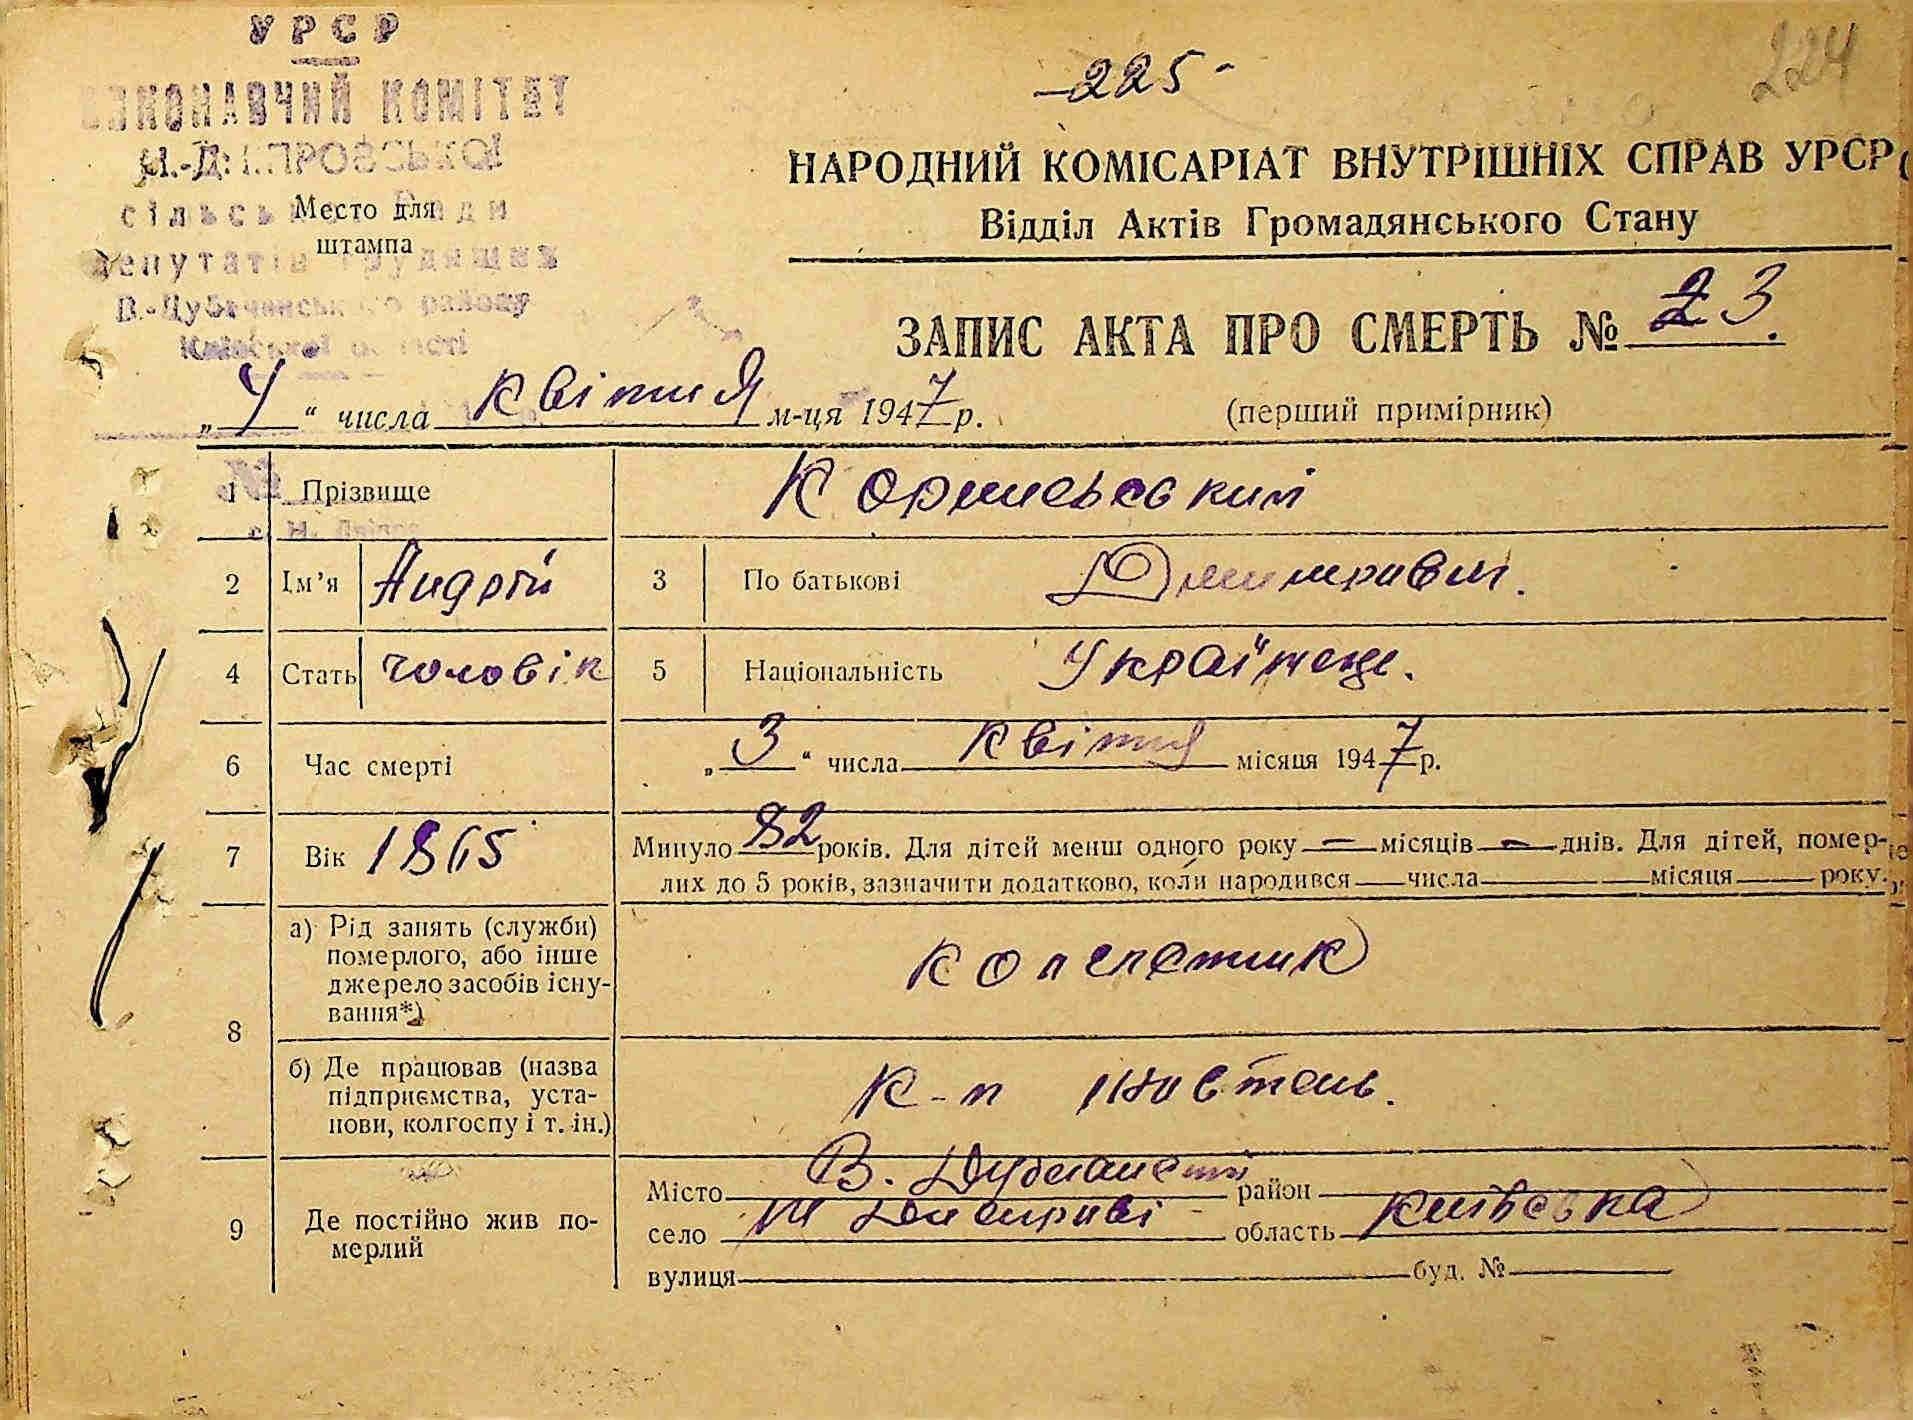 УРСР
ВИКОНАВЧИЙ КОМІТЕТ
Н.-ДНІПРОВСЬКОЇ
сільської Ради
депутатів трудящих
В.-Дубечанського району
Київської області
Место для
штампа
224
-225-
НАРОДНИЙ КОМІСАРІАТ ВНУТРІШНІХ СПРАВ УРСР
Відділ Актів Громадянського Стану
ЗАПИС АКТА ПРО СМЕРТЬ № 23.
„4“ числа квітня м-ця 1947 р.
(перший примірник)
№
1 Прізвище
2 Ім'я Андрій 3 По батькові Дмитрович.
4 Стать чоловік 5 Національність Українець.
6 Час смерті „3“ числа квітня місяця 1947 р.
7 Вік 1865 Минуло 82 років. Для дітей менш одного року — місяців — днів. Для дітей, помер-
лих до 5 років, зазначити додатково, коли народився числа місяця року.
8 а) Рід занять (служби)
померлого, або інше
джерело засобів існу-
вання*)
колгоспник
б) Де працював (назва
підприємства, уста-
нови, колгоспу і т. ін.)
К-п Жовтень.
9 Де постійно жив по-
мерлий
Місто В. район
село область Київська
вулиця буд. №